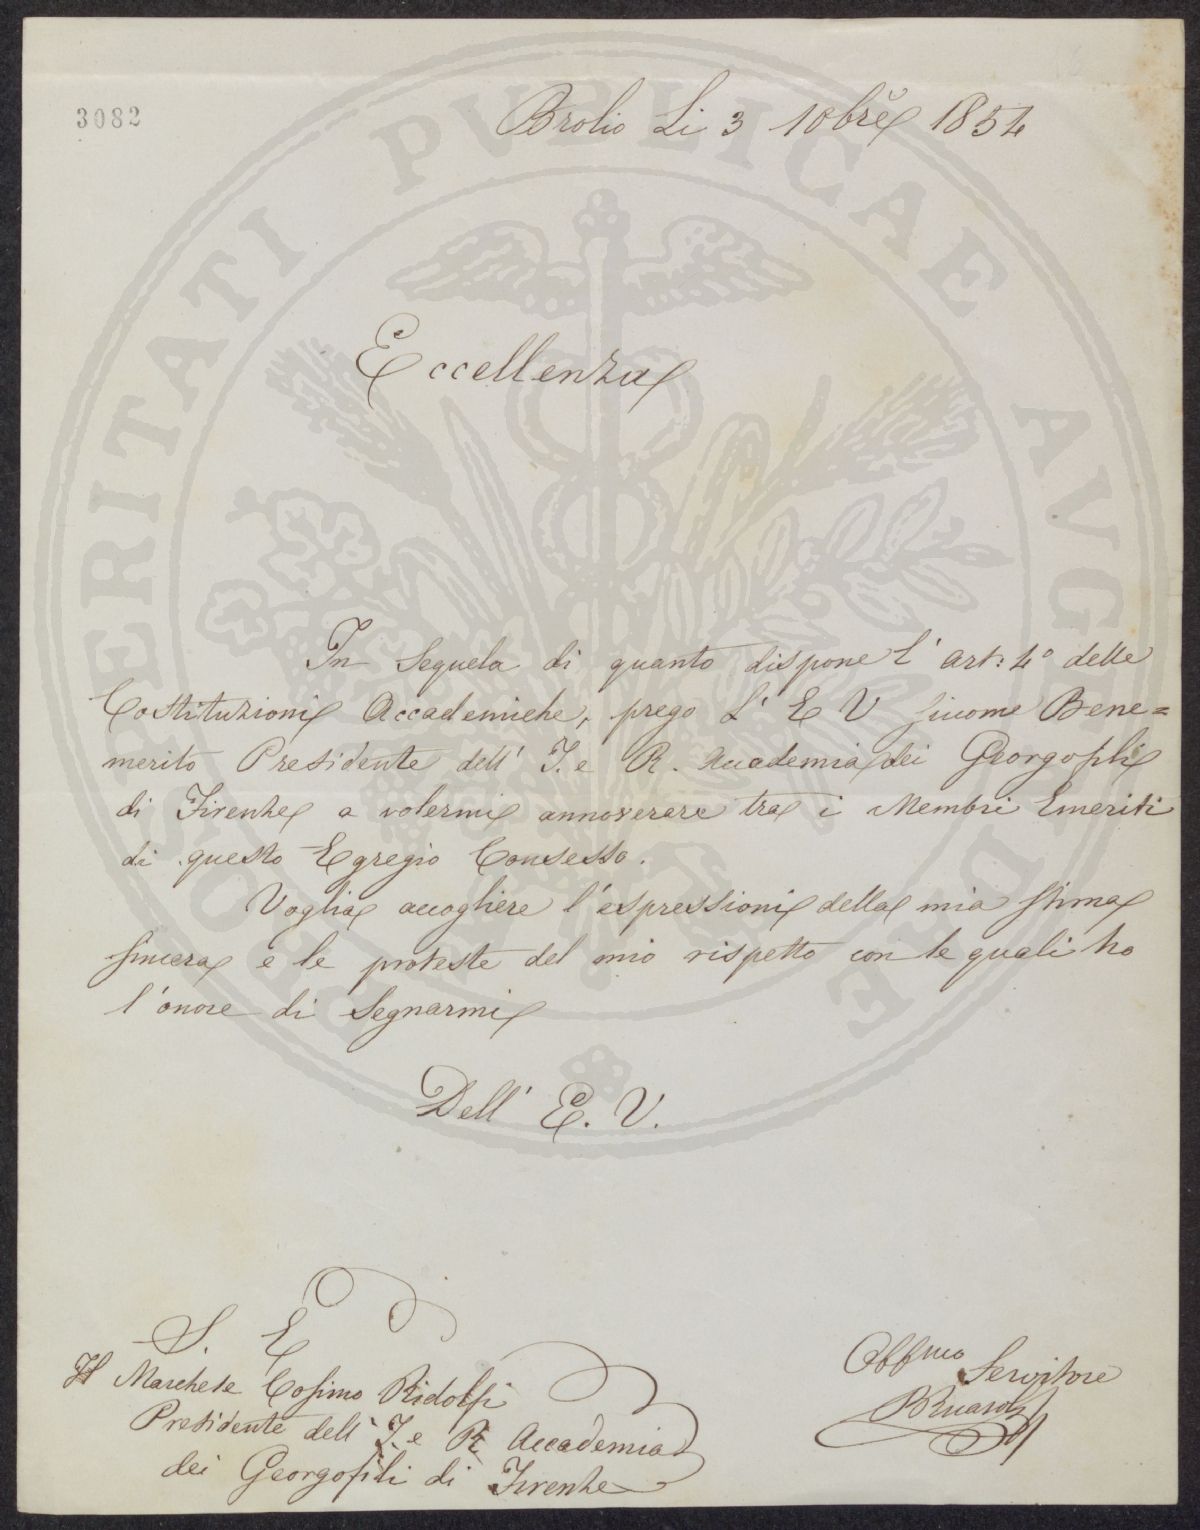 3082
Brolio Li 3 10bre 1854
Eccellenza
In Sequela di quanto dispone l' art: 4° delle
Costituzioni Accademiche, prego L' E V siccome Bene=
merito Presidente dell' I. e R. Accademia dei Georgofili
di Firenze a volermi annoverare tra i Membri Emeriti
di questo Egregio Consesso.
Voglia accogliere l'espressioni della mia stima
sincera e le proteste del mio rispetto con le quali ho
l'onore di Segnarmi
Dell' E. V.
S. E
Il Marchese Cosimo Ridolfi
Presidente dell' I. e R. Accademia
dei Georgofili di Firenze
Obbmo Servitore
BRicasoli
PROSPERITATI PVBLICAE AVGENDAE